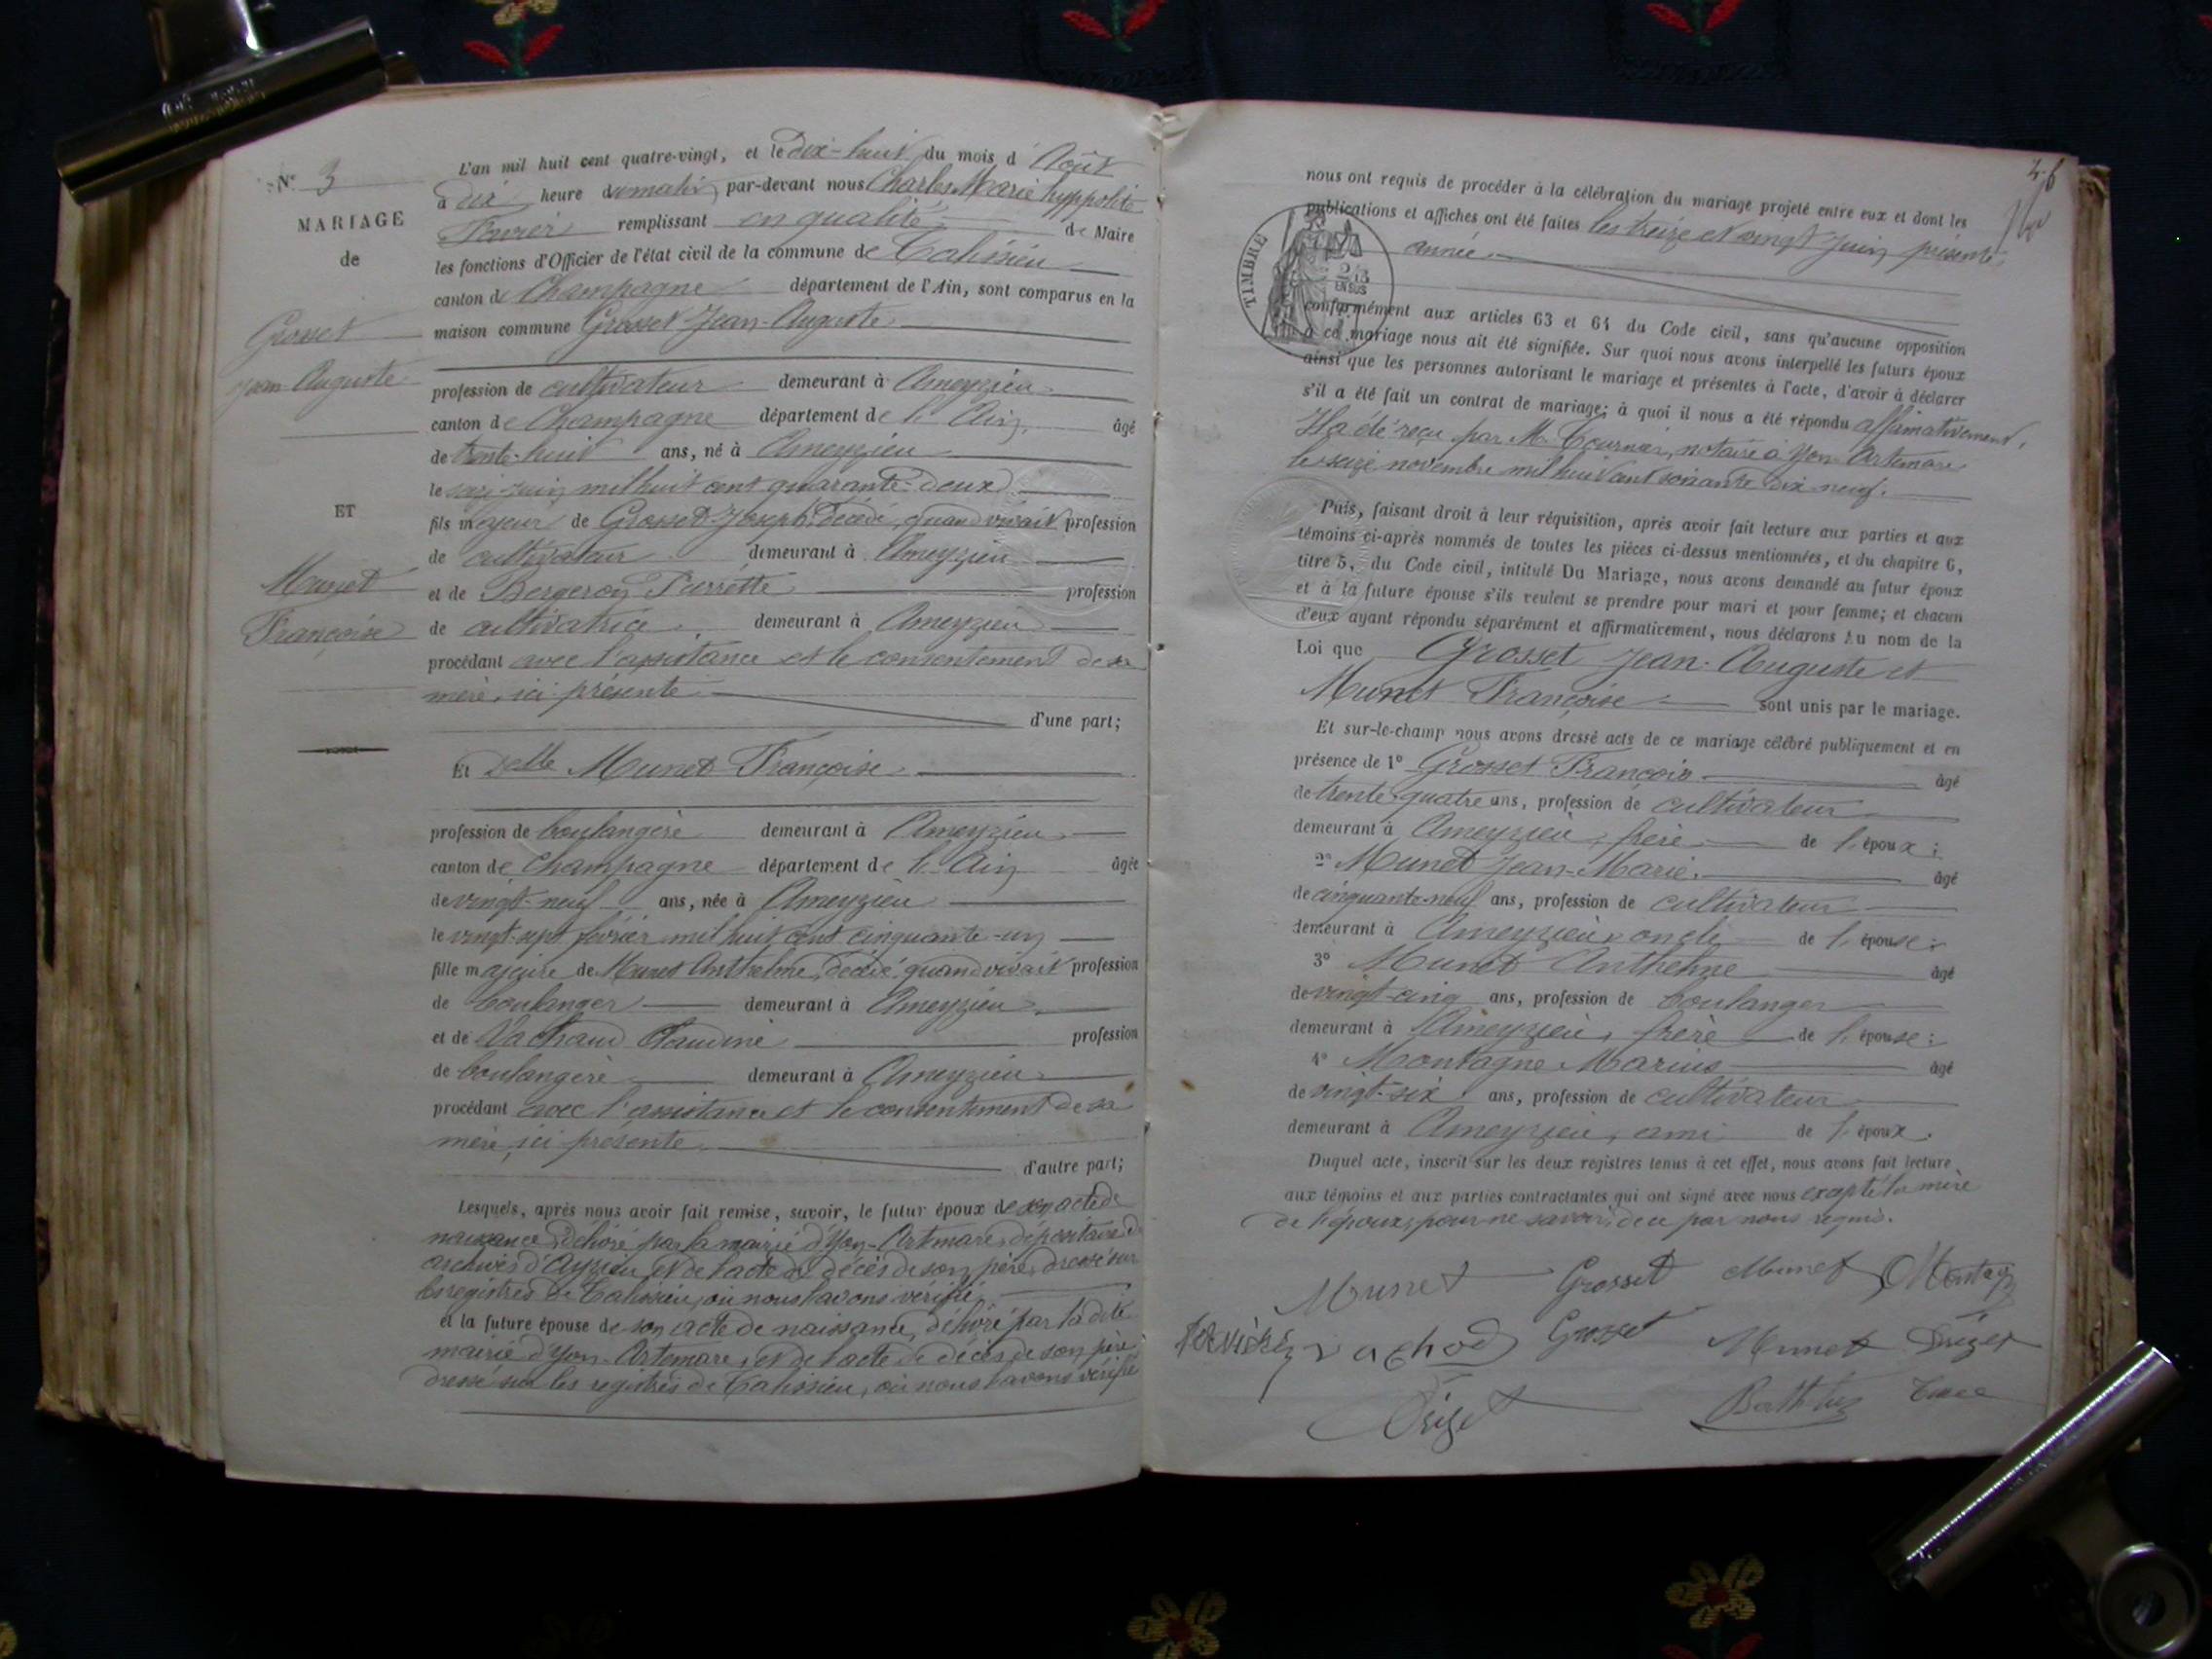 N° 3
MARIAGE
de
Grosset
Jean Auguste
ET
Munet
Françoise
L'an mil huit cent quatre-vingt, et le dix-huit du mois d'Août
à dix heure du matin, par-devant nous Charles Marie hyppolite
remplissant en qualité de Maire
les fonctions d'Officier de l'état civil de la commune de Talissieu
canton de Champagne département de l'Ain, sont comparus en la
maison commune Grosset Jean-Auguste
profession de cultivateur demeurant à Ameyzieu
canton de Champagne département de l'Ain, âgé
de trente-huit ans, né à Ameyzieu
le juin mil huit cent quarante-deux
fils majeur de Grosset Joseph, décédé, quand vivait profession
de cultivateur demeurant à Ameyzieu
et de Bergeron Pierrette profession
de cultivatrice demeurant à Ameyzieu
procédant avec l'assistance et le consentement de sa
mère, ici présente
d'une part;
Et Delle Munet Françoise
profession de boulangère demeurant à Ameyzieu
canton de Champagne département de l'Ain âgée
de vingt-neuf ans, née à Ameyzieu
le vingt-sept février mil huit cent cinquante-un
fille majeure de Munet Anthelme, décédé, quand vivait profession
de boulanger demeurant à Ameyzieu
et de Vachaud Claudine profession
de boulangère demeurant à Ameyzieu
procédant avec l'assistance et le consentement de sa
mère, ici présente
d'autre part;
Lesquels, après nous avoir fait remise, savoir, le futur époux de son acte de
naissance, délivré par la mairie d'Yon-Artemare, dépositaire des
archives d', et de l'acte de décès de son père, dressé sur
les registres de Talissieu, où nous l'avons vérifié,
et la future épouse de son acte de naissance, délivré par la dite
mairie d'Yon-Artemare, et de l'acte de décès de son père,
dressé sur les registres de Talissieu, où nous l'avons vérifié
26
nous ont requis de procéder à la célébration du mariage projeté entre eux et dont les
publications et affiches ont été faites les treize et vingt juin présente
année
TIMBRE
2/10
EN SUS
conformément aux articles 63 et 64 du Code civil, sans qu'aucune opposition
à ce mariage nous ait été signifiée. Sur quoi nous avons interpellé les futurs époux
ainsi que les personnes autorisant le mariage et présentes à l'acte, d'avoir à déclarer
s'il a été fait un contrat de mariage; à quoi il nous a été répondu affirmativement,
Il a été reçu par M. Tournier, notaire à Yon-Artemare
le seize novembre mil huit cent soixante dix neuf.
Puis, faisant droit à leur réquisition, après avoir fait lecture aux parties et aux
témoins ci-après nommés de toutes les pièces ci-dessus mentionnées, et du chapitre 6,
titre 5, du Code civil, intitulé Du Mariage, nous avons demandé au futur époux
et à la future épouse s'ils veulent se prendre pour mari et pour femme; et chacun
d'eux ayant répondu séparément et affirmativement, nous déclarons au nom de la
Loi que Grosset Jean-Auguste et
Munet Françoise sont unis par le mariage.
Et sur-le-champ nous avons dressé acts de ce mariage célébré publiquement et en
présence de 1° Grosset François âgé
de trente-quatre ans, profession de cultivateur
demeurant à Ameyzieu, frère de l'époux;
2° Munet Jean-Marie, âgé
de cinquante-neuf ans, profession de cultivateur
demeurant à Ameyzieu, oncle de l'épouse;
3° Munet Anthelme âgé
de vingt-cinq ans, profession de boulanger
demeurant à Ameyzieu, frère de l'épouse;
4° Montagne Marius âgé
de vingt-six ans, profession de cultivateur
demeurant à Ameyzieu, ami de l'époux.
Duquel acte, inscrit sur les deux registres tenus à cet effet, nous avons fait lecture
aux témoins et aux parties contractantes qui ont signé avec nous excepté la mère
de l'époux, pour ne savoir, de ce par nous requis.
Munet Grosset Munet
vachod Grosset Munet